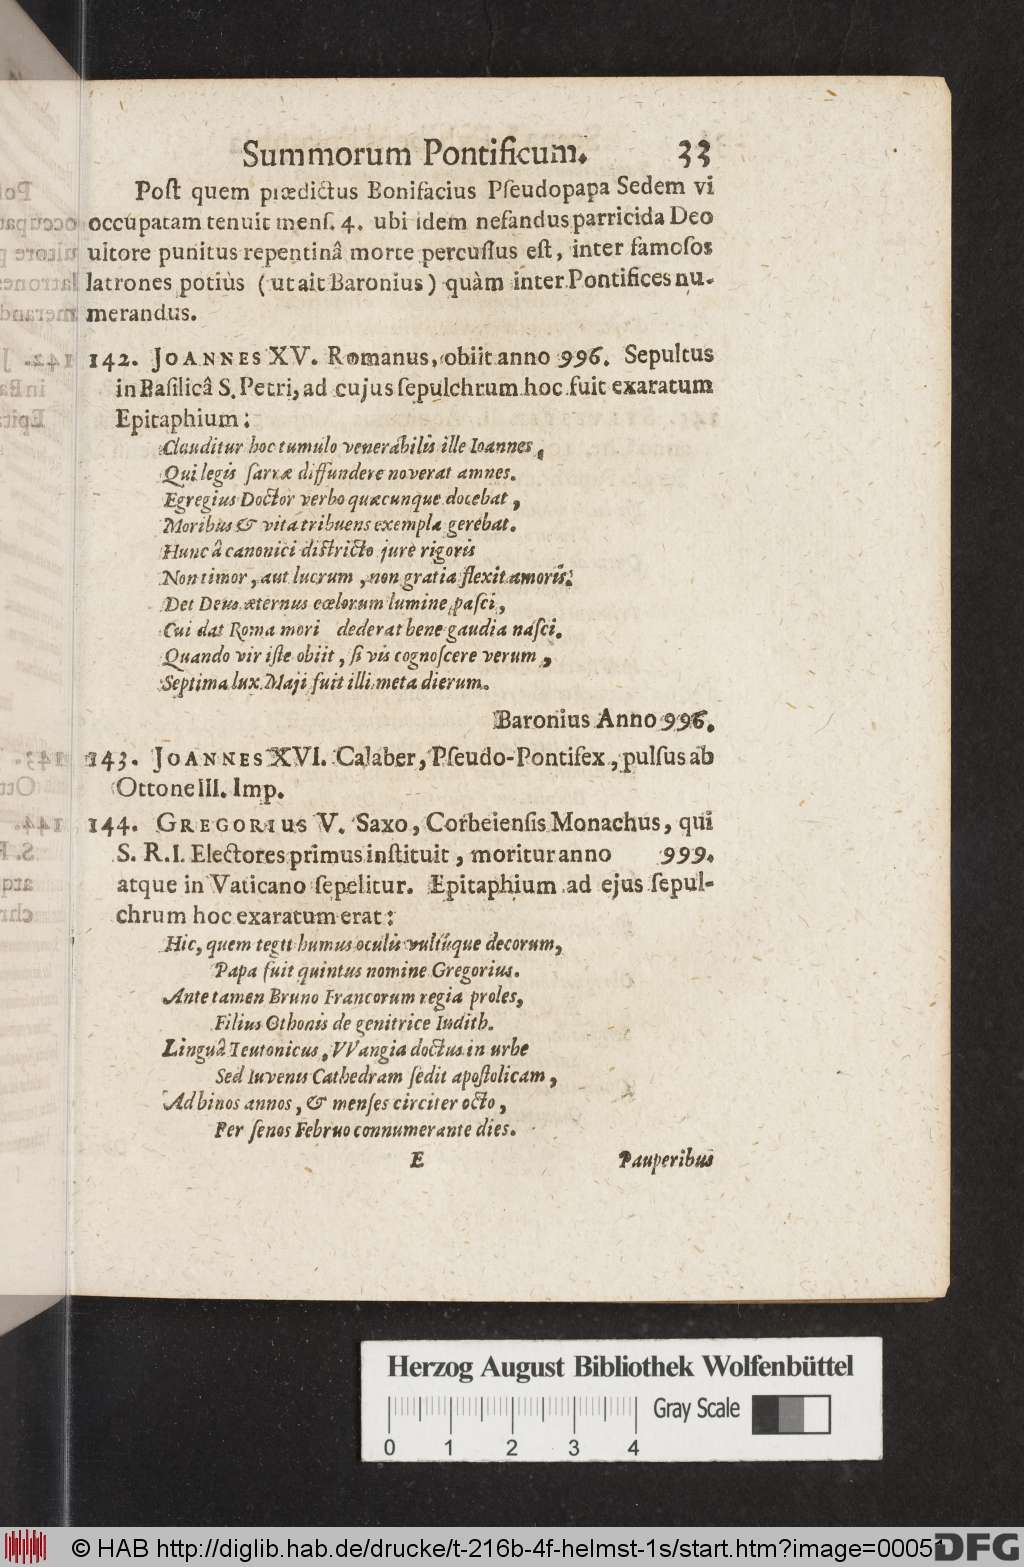 Summorum Pontificum. 33
Poſt quem prædictus Bonifacius Pſeudopapa Sedem vi
occupatam tenuit menſ. 4. ubi idem nefandus parricida Deo
ultore punitus repentinâ morte percuſſus eſt, inter famoſos
latrones potiùs (ut ait Baronius) quàm inter Pontifices nu-
merandus.
142. JOANNES XV. Romanus, obiit anno 996. Sepultus
in Baſilicâ S. Petri, ad cujus ſepulchrum hoc fuit exaratum
Epitaphium:
Clauditur hoc tumulo venerabilis ille Ioannes,
Qui legis ſacræ diffundere noverat amnes.
Egregius Doctor verbo quæcunque docebat,
Moribus & vita tribuens exempla gerebat.
Hunc â canonici diſtricto jure rigoris
Non timor, aut lucrum, non gratia flexit amoris.
Det Deus æternus cœlorum lumine paſci,
Cui dat Roma mori dederat bene gaudia naſci.
Quando vir iſte obiit, ſi vis cognoſcere verum,
Septima lux Maji fuit illi meta dierum.
Baronius Anno 996.
143. JOANNES XVI. Calaber, Pſeudo-Pontifex, pulſus ab
Ottone III. Imp.
144. GREGORIUS V. Saxo, Corbeienſis Monachus, qui
S. R. I. Electores primus inſtituit, moritur anno 999.
atque in Vaticano ſepelitur. Epitaphium ad ejus ſepul-
chrum hoc exaratum erat:
Hic, quem tegit humus oculis vultûque decorum,
Papa fuit quintus nomine Gregorius.
Ante tamen Bruno Francorum regia proles,
Filius Othonis de genitrice Iudith.
Linguâ Teutonicus, VVangia doctus in urbe
Sed Iuvenis Cathedram ſedit apoſtolicam,
Ad binos annos, & menſes circiter octo,
Per ſenos Februo connumerante dies.
E Pauperibus
Herzog August Bibliothek Wolfenbüttel
Gray Scale
0 1 2 3 4
© HAB http://diglib.hab.de/drucke/t-216b-4f-helmst-1s/start.htm?image=00051
DFG